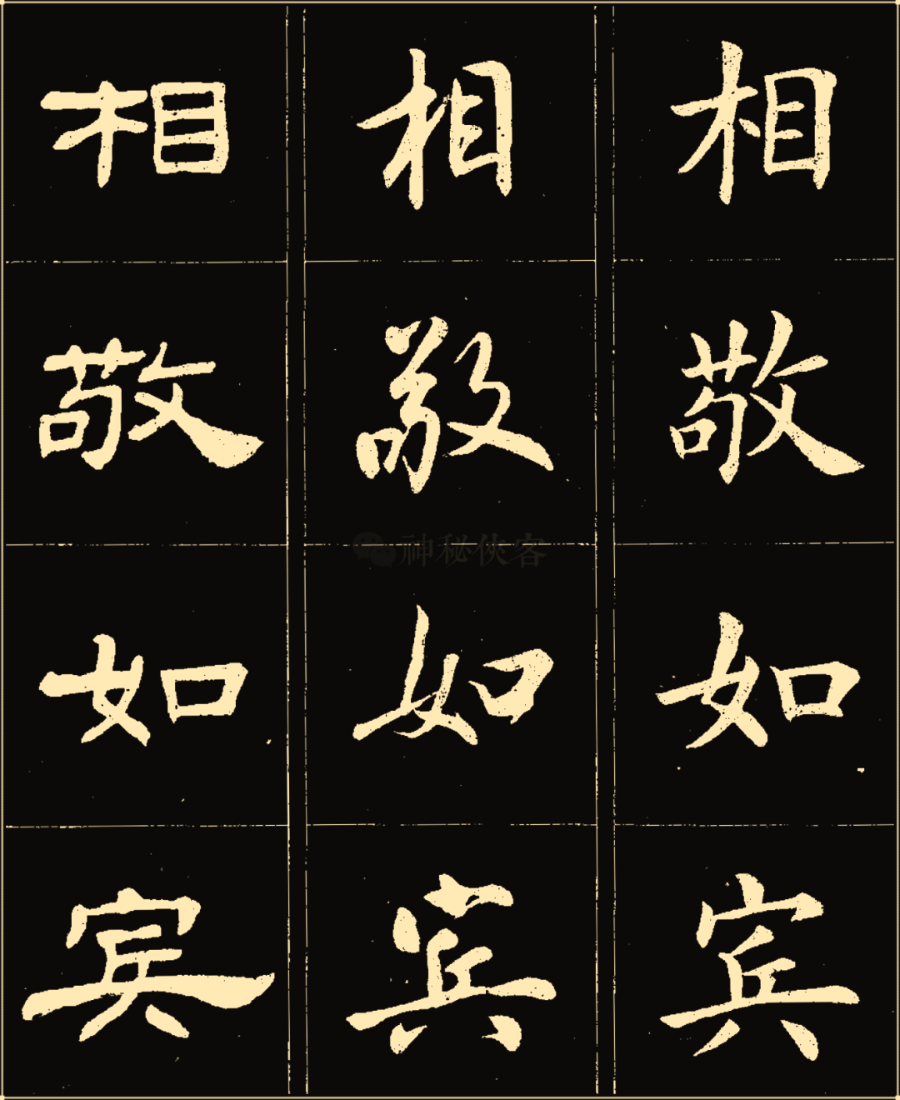 相敬如宾
相敬如宾
相敬如宾
神秘侠客